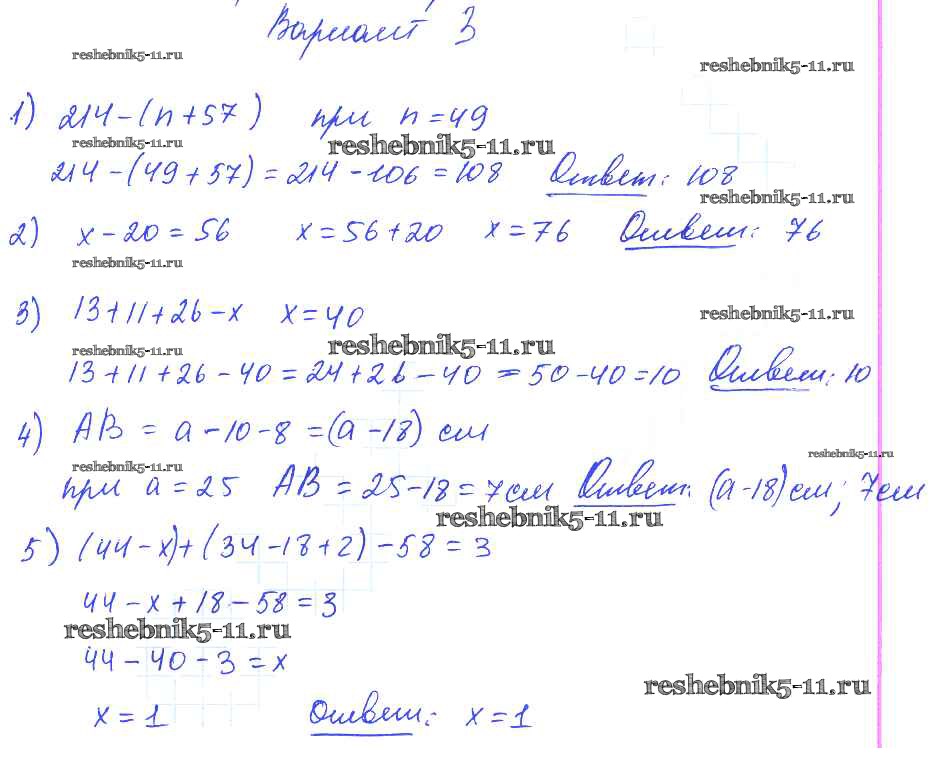 Вариант 3
reshebnik5-11.ru
reshebnik5-11.ru
1) 214-(n+57) при n=49
reshebnik5-11.ru
reshebnik5-11.ru
214-(49+57)=214-106=108 Ответ: 108
reshebnik5-11.ru
2) x-20=56 x=56+20 x=76 Ответ: 76
reshebnik5-11.ru
3) 13+11+26-x x=40
reshebnik5-11.ru
reshebnik5-11.ru
reshebnik5-11.ru
13+11+26-40=24+26-40=50-40=10 Ответ: 10
4) AB = a-10-8=(a-18) см
reshebnik5-11.ru
reshebnik5-11.ru
при a=25 AB=25-18=7см Ответ: (a-18)см; 7см
reshebnik5-11.ru
5) (44-x)+(34-18+2)-58=3
44-x+18-58=3
reshebnik5-11.ru
44-40-3=x
reshebnik5-11.ru
x=1 Ответ: x=1